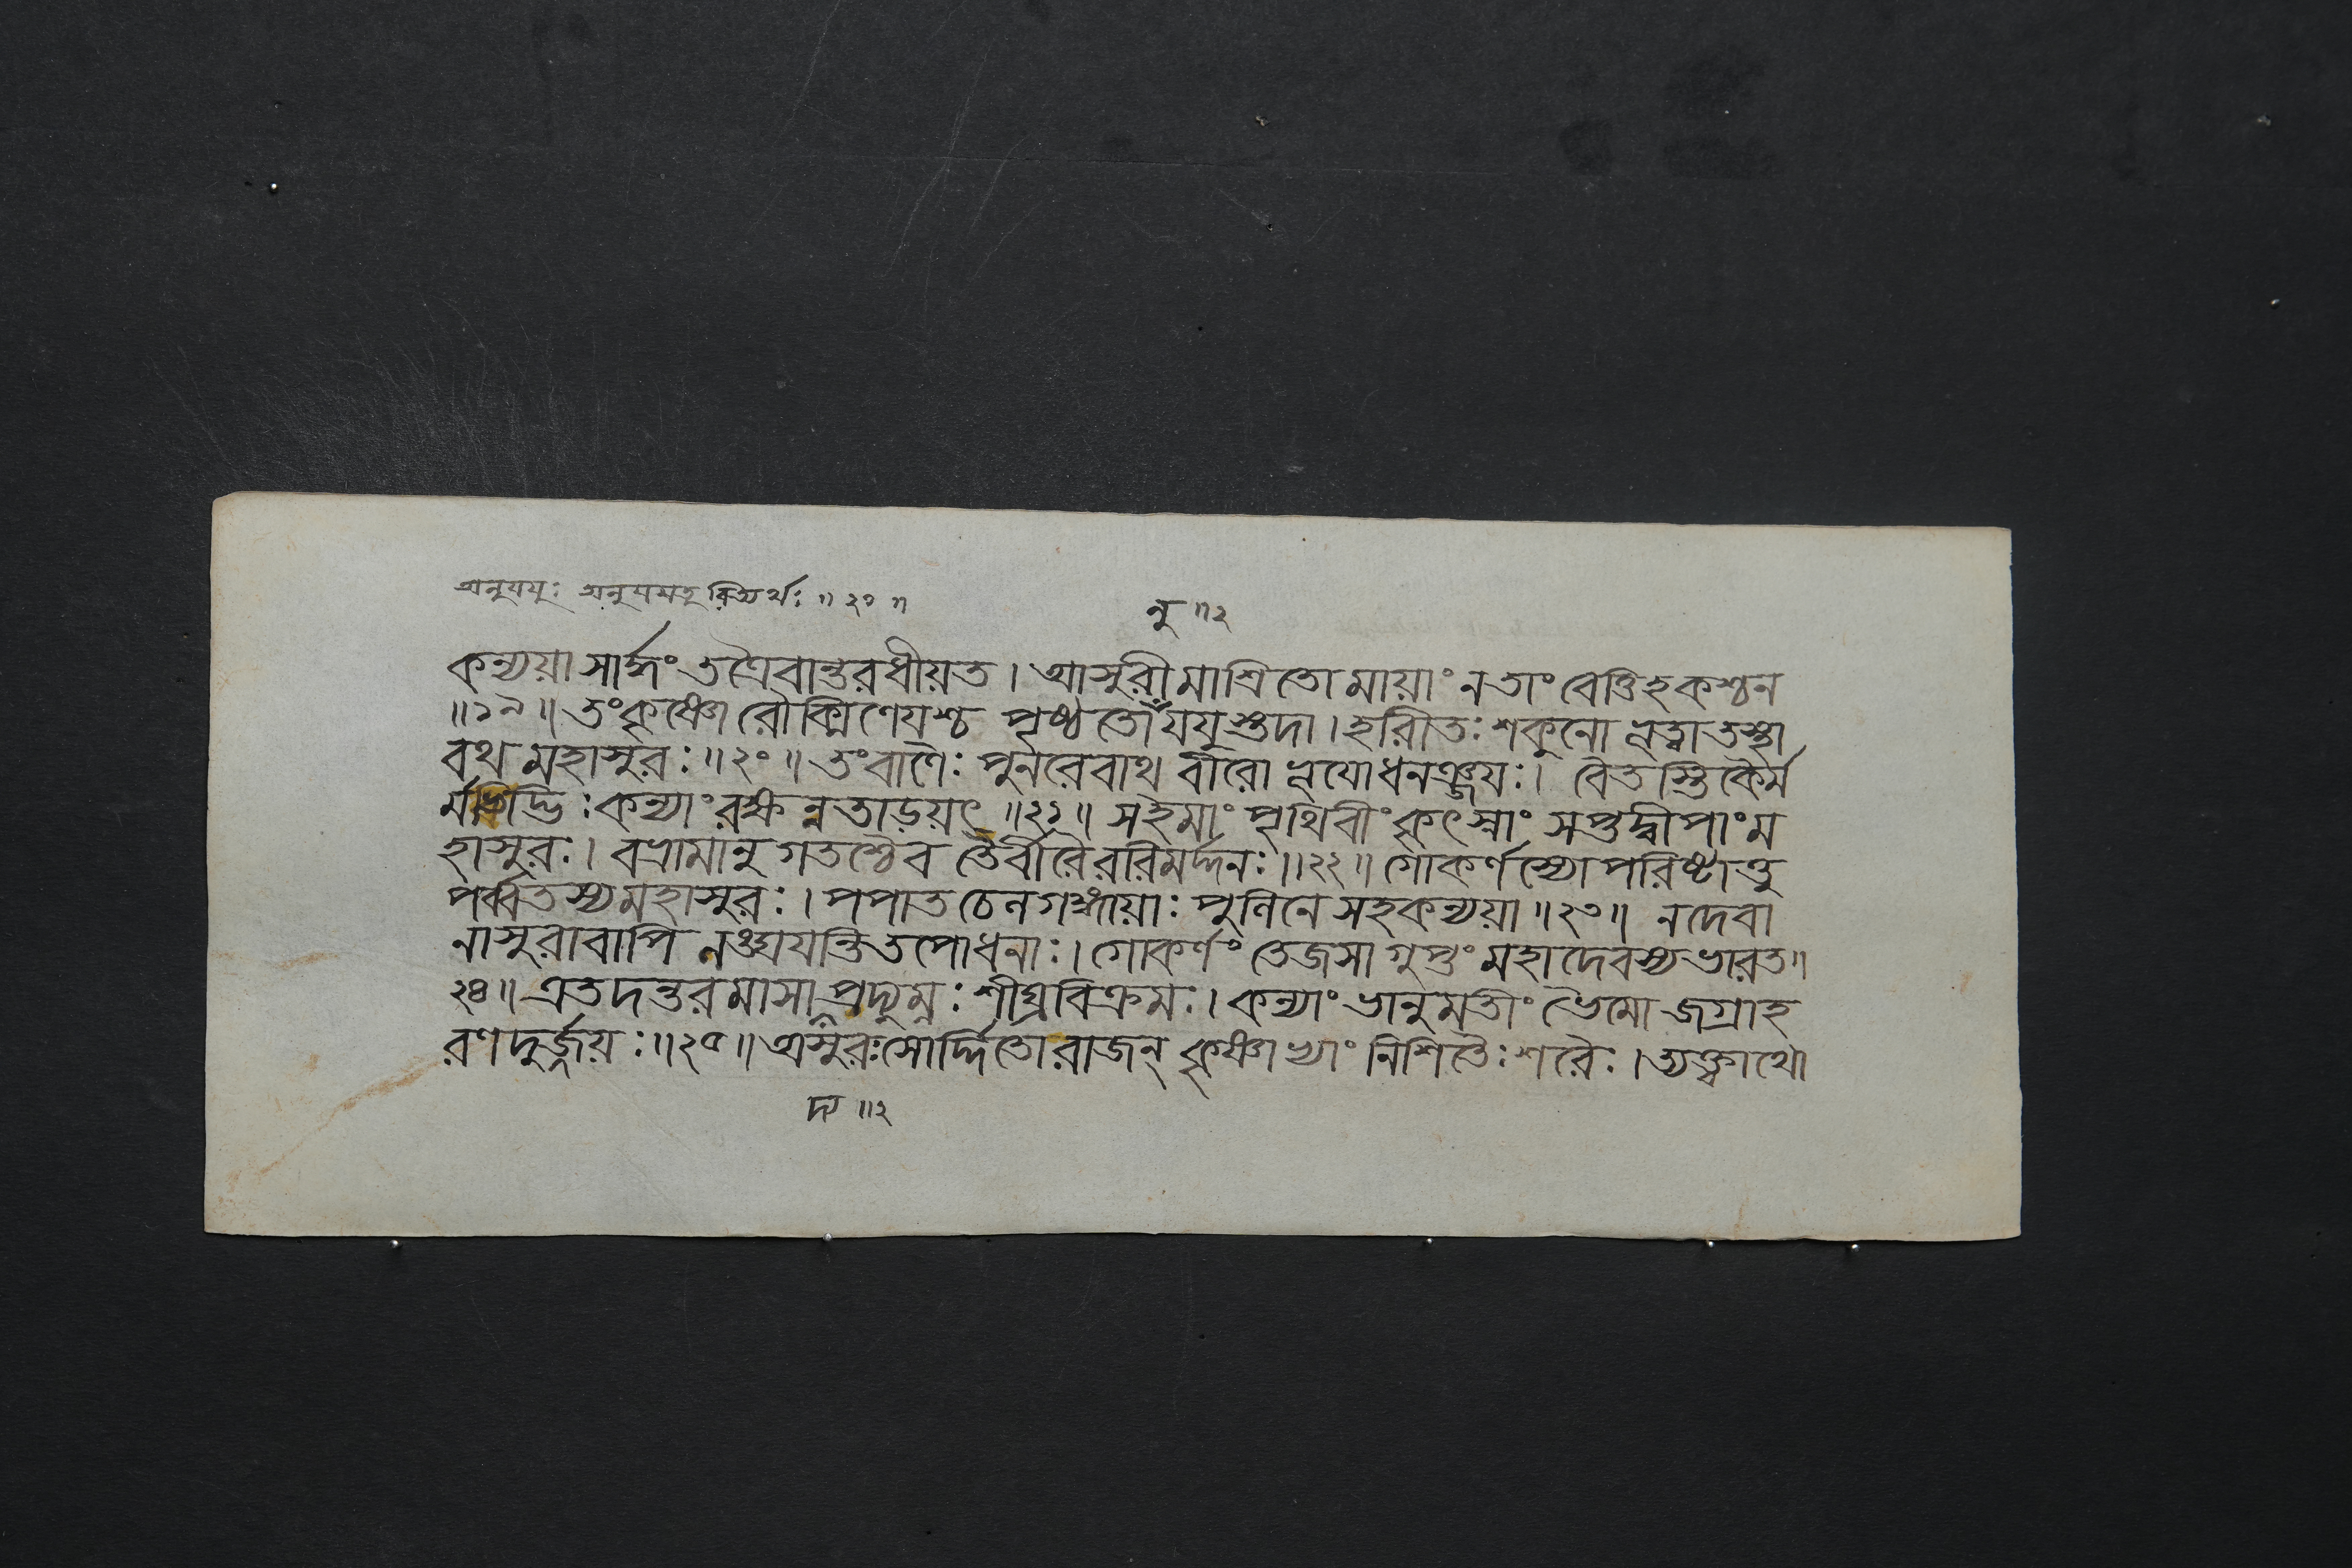 অনুযযুঃ অনুযযতুরিত্যর্থঃ ॥ ২০ ॥
নু ॥ ২
কন্যয়া সার্দ্ধং তত্রৈবান্তরধীয়ত । আসুরীমাশ্রিতো মায়াং নতাং বেত্তিহকশ্চন
॥ ১৯ ॥ তং কৃষ্ণো রৌক্মিণেযশ্চ পৃষ্ঠতো যযুস্তদা । হরিতঃ শকুনো ভূত্বা তস্থা
বথ মহাসুরঃ ॥ ২০ ॥ তং বাণৈঃ পুনরেবাথ বীরো ভূযো ধনঞ্জযঃ । বৈতস্তিকৈর্ম
র্মভিদ্ভিঃ কন্যাং রক্ষন্নতাড়য়ৎ ॥ ২১ ॥ সহমাং পৃথিবীং কৃৎস্নাং সপ্তদ্বীপাং ম
হাসুরঃ । বভ্রামানুগতশ্চৈব তৈর্বীরৈররিমর্দ্দনঃ ॥ ২২ ॥ গোকর্ণস্যোপরিষ্টাত্তু
পর্ব্বতস্য মহাসুরঃ । পপাত চেন গঙ্গায়াঃ পুলিনে সহকন্যয়া ॥ ২৩ ॥ নদেবা
নাসুরাবাপি নঙ্ঘযন্তি তপোধনাঃ । গোকর্ণং তেজসা গুপ্তং মহাদেবস্য ভারত ॥
২৪ ॥ এতদন্তরমাসা প্রদ্যুম্নঃ শীঘ্রবিক্রমঃ । কন্যাং ভানুমতীং ভৈমো জগ্রাহ
রণদুর্জ্জয়ঃ ॥ ২৫ ॥ অসুরঃ সোর্দ্দিতো রাজন্ কৃষ্ণাভ্যাং নিশিতৈঃ শরৈঃ । ত্যক্ত্বাথো
দ্য ॥ ২